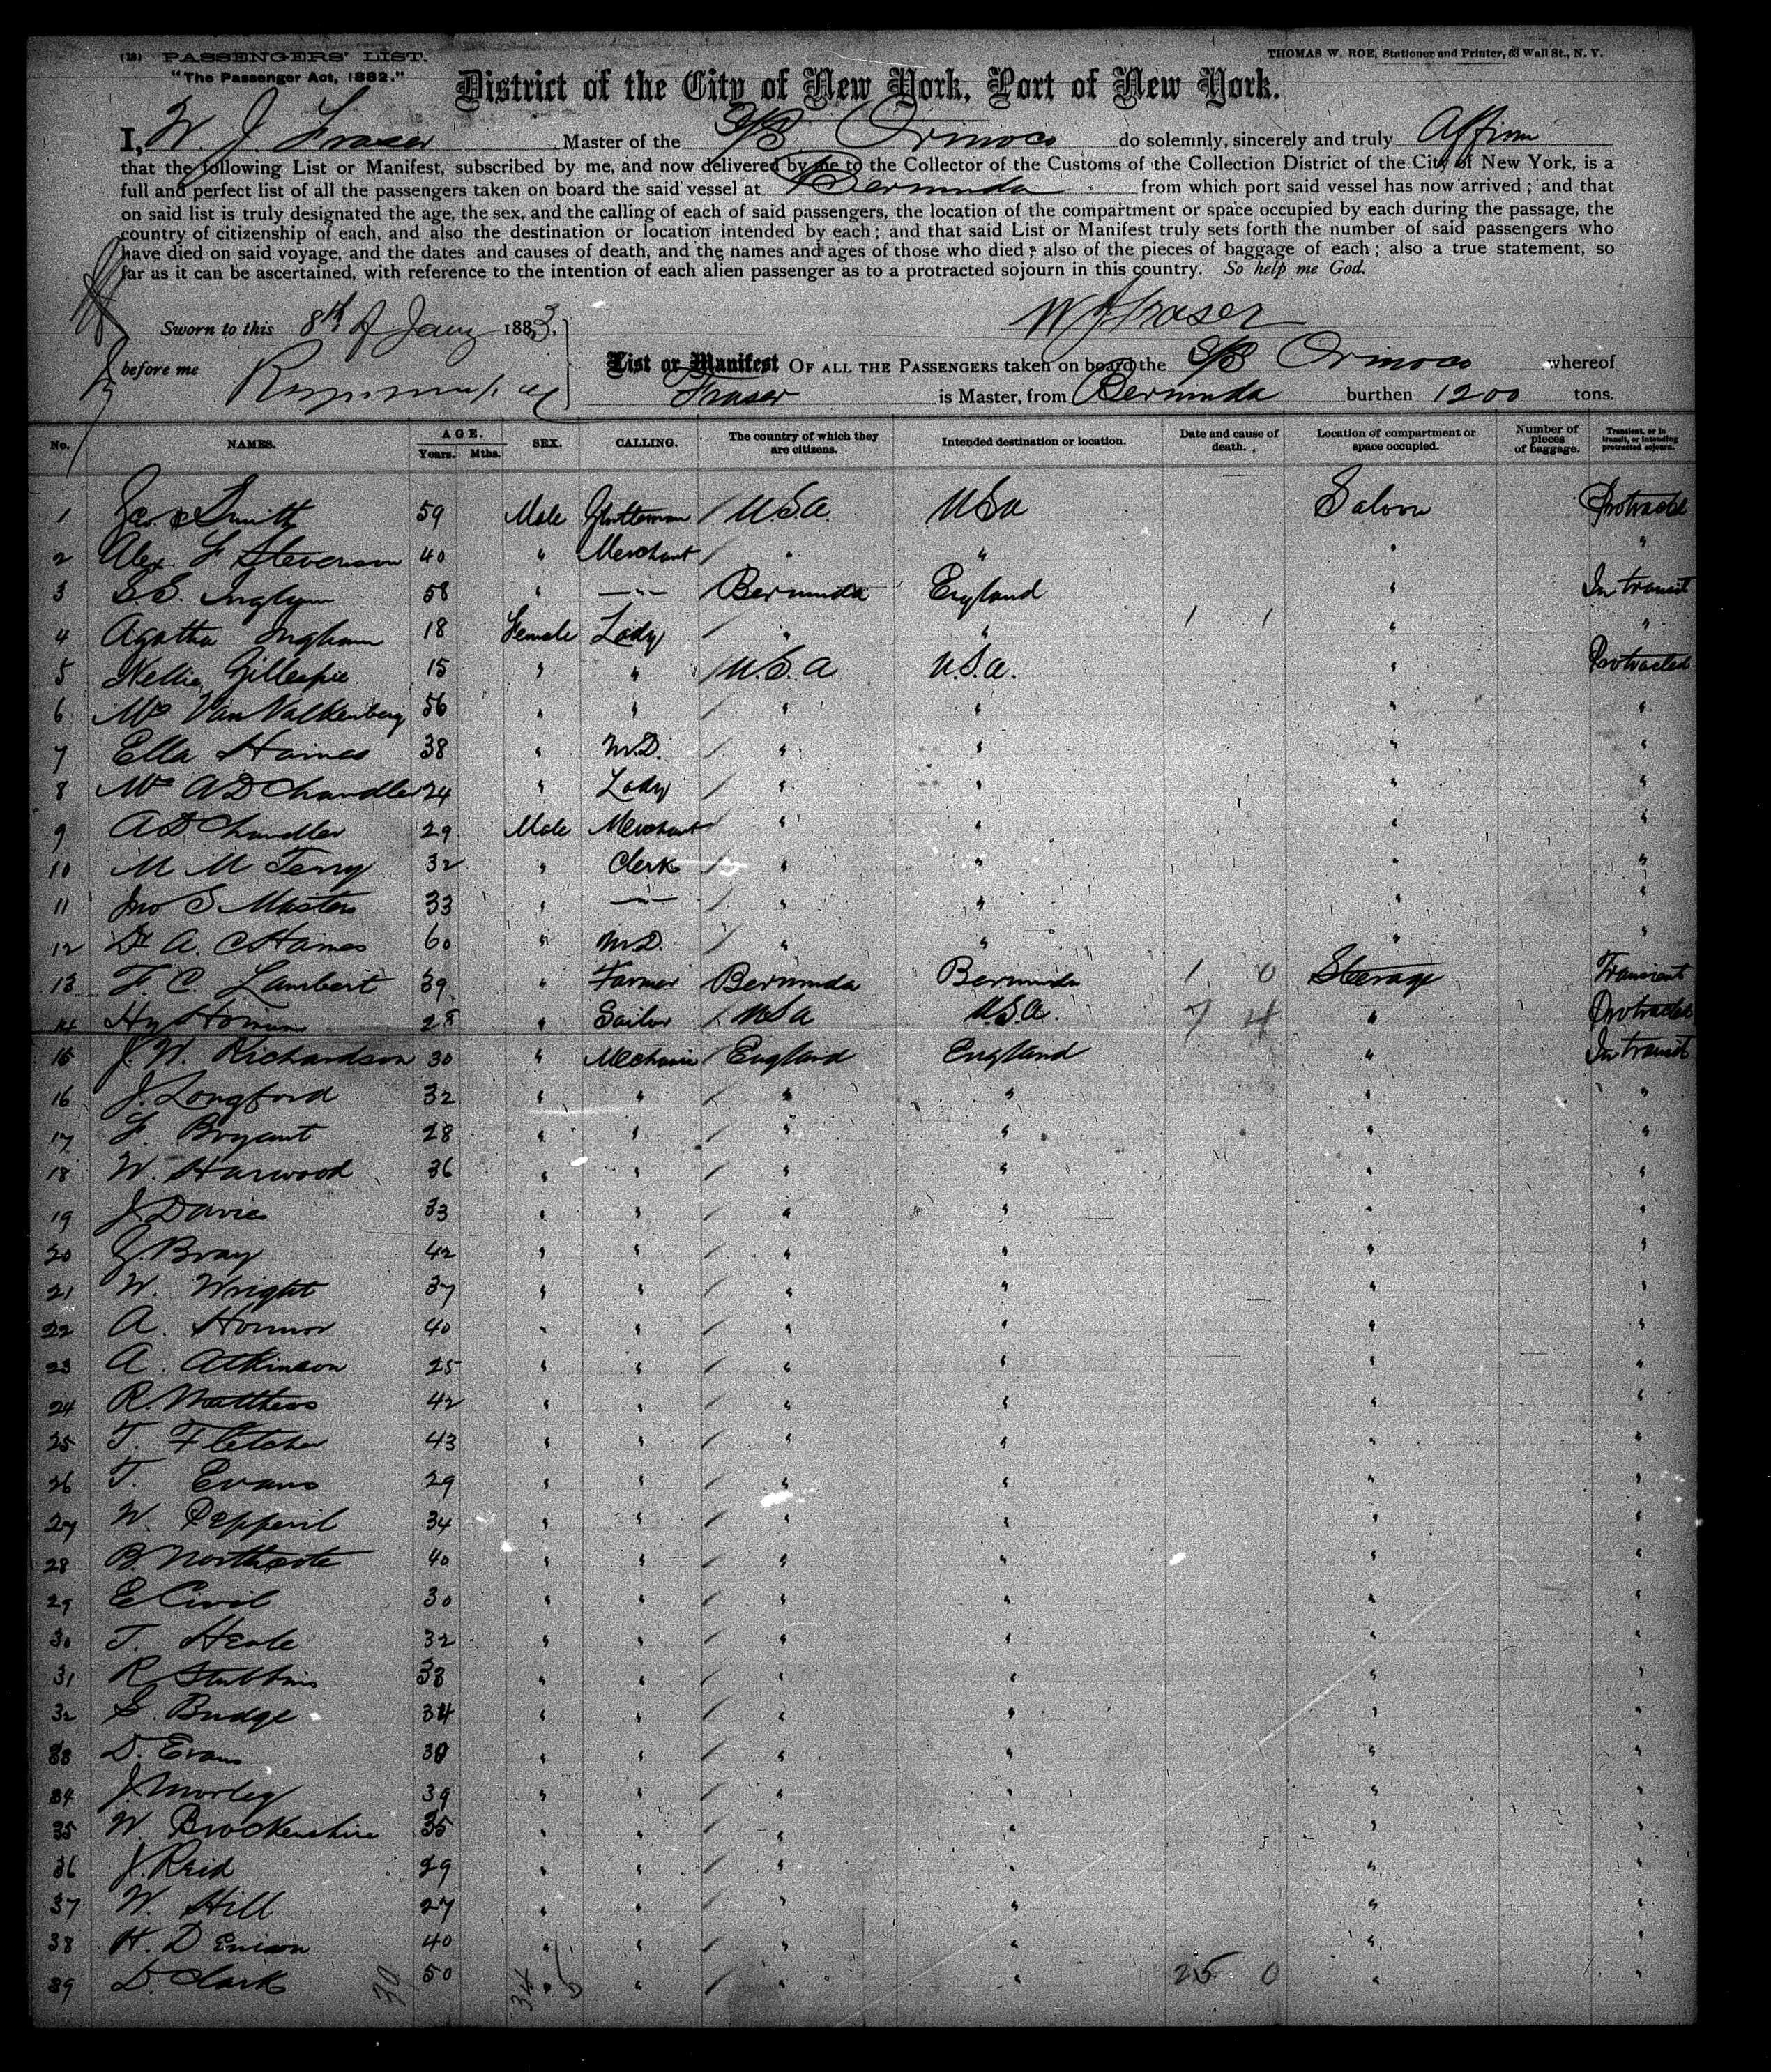 (18) PASSENGERS' LIST.
"The Passenger Act, 1882."
THOMAS W. ROE, Stationer and Printer, 63 Wall St., N. Y.
District of the City of New York, Port of New York.
I, W. J. Fraser Master of the S/S Orinoco do solemnly, sincerely and truly Affirm
that the following List or Manifest, subscribed by me, and now delivered by me to the Collector of the Customs of the Collection District of the City of New York, is a
full and perfect list of all the passengers taken on board the said vessel at Bermuda from which port said vessel has now arrived; and that
on said list is truly designated the age, the sex, and the calling of each of said passengers, the location of the compartment or space occupied by each during the passage, the
country of citizenship of each, and also the destination or location intended by each; and that said List or Manifest truly sets forth the number of said passengers who
have died on said voyage, and the dates and causes of death, and the names and ages of those who died; also of the pieces of baggage of each; also a true statement, so
far as it can be ascertained, with reference to the intention of each alien passenger as to a protracted sojourn in this country. So help me God.
W J Fraser
Sworn to this 8th of Jany 1883.
before me
List or Manifest OF ALL THE PASSENGERS taken on board the S/S Orinoco whereof
Fraser is Master, from Bermuda burthen 1200 tons.
No. NAMES. AGE. Years. Mths. SEX. CALLING. The country of which they are citizens. Intended destination or location. Date and cause of death. Location of compartment or space occupied. Number of pieces of baggage. Transient, or in transit, or intending protracted sojourn.
1 Smith 59 Male Gentleman U.S.A. USA Saloon Protracted
2 Alex. F Stevenson 40 " Merchant " " " "
3 S.S. 58 " —"— Bermuda England " In transit
4 Agatha Ingham 18 Female Lady " " 1 1 " "
5 Nellie Gillespie 15 " " U.S.A U.S.A. " Protracted
6 Mrs Van Valkenberg 56 " " " " " "
7 Ella Haines 38 " M.D. " " " "
8 Mrs A D Chandler 24 " Lady " " " "
9 A D Chandler 29 Male Merchant " " " "
10 M M Terry 32 " Clerk " " " "
11 Jno S Masters 33 " —"— " " " "
12 Dr A. C Haines 60 " M.D. " " " "
13 F. C. Lambert 39 " Farmer Bermuda Bermuda 1 0 Steerage Transient
14 Hy 28 " Sailor USA U.S.A. 7 4 " Protracted
15 J. W. Richardson 30 " Mechanic England England " In transit
16 J. Longford 32 " " " " " "
17 F. Bryant 28 " " " " " "
18 W. Harwood 36 " " " " " "
19 J. Davies 33 " " " " " "
20 J. Bray 42 " " " " " "
21 W. Wright 37 " " " " " "
22 A. Honnor 40 " " " " " "
23 A. Atkinson 25 " " " " " "
24 R. Matthews 42 " " " " " "
25 T. Fletcher 43 " " " " " "
26 T. Evans 29 " " " " " "
27 W. Pepperil 34 " " " " " "
28 B. Northcote 40 " " " " " "
29 E Civil 30 " " " " " "
30 T. Heale 32 " " " " " "
31 R. Stubbins 38 " " " " " "
32 S. Budge 34 " " " " " "
33 D. Evans 30 " " " " " "
34 J. Morley 39 " " " " " "
35 W. Brockenshire 35 " " " " " "
36 J. Reid 29 " " " " " "
37 W. Hill 27 " " " " " "
38 H. Denison 40 " " " " " "
39 D. Clark 50 " " " " 25 0 " "
30 34 5